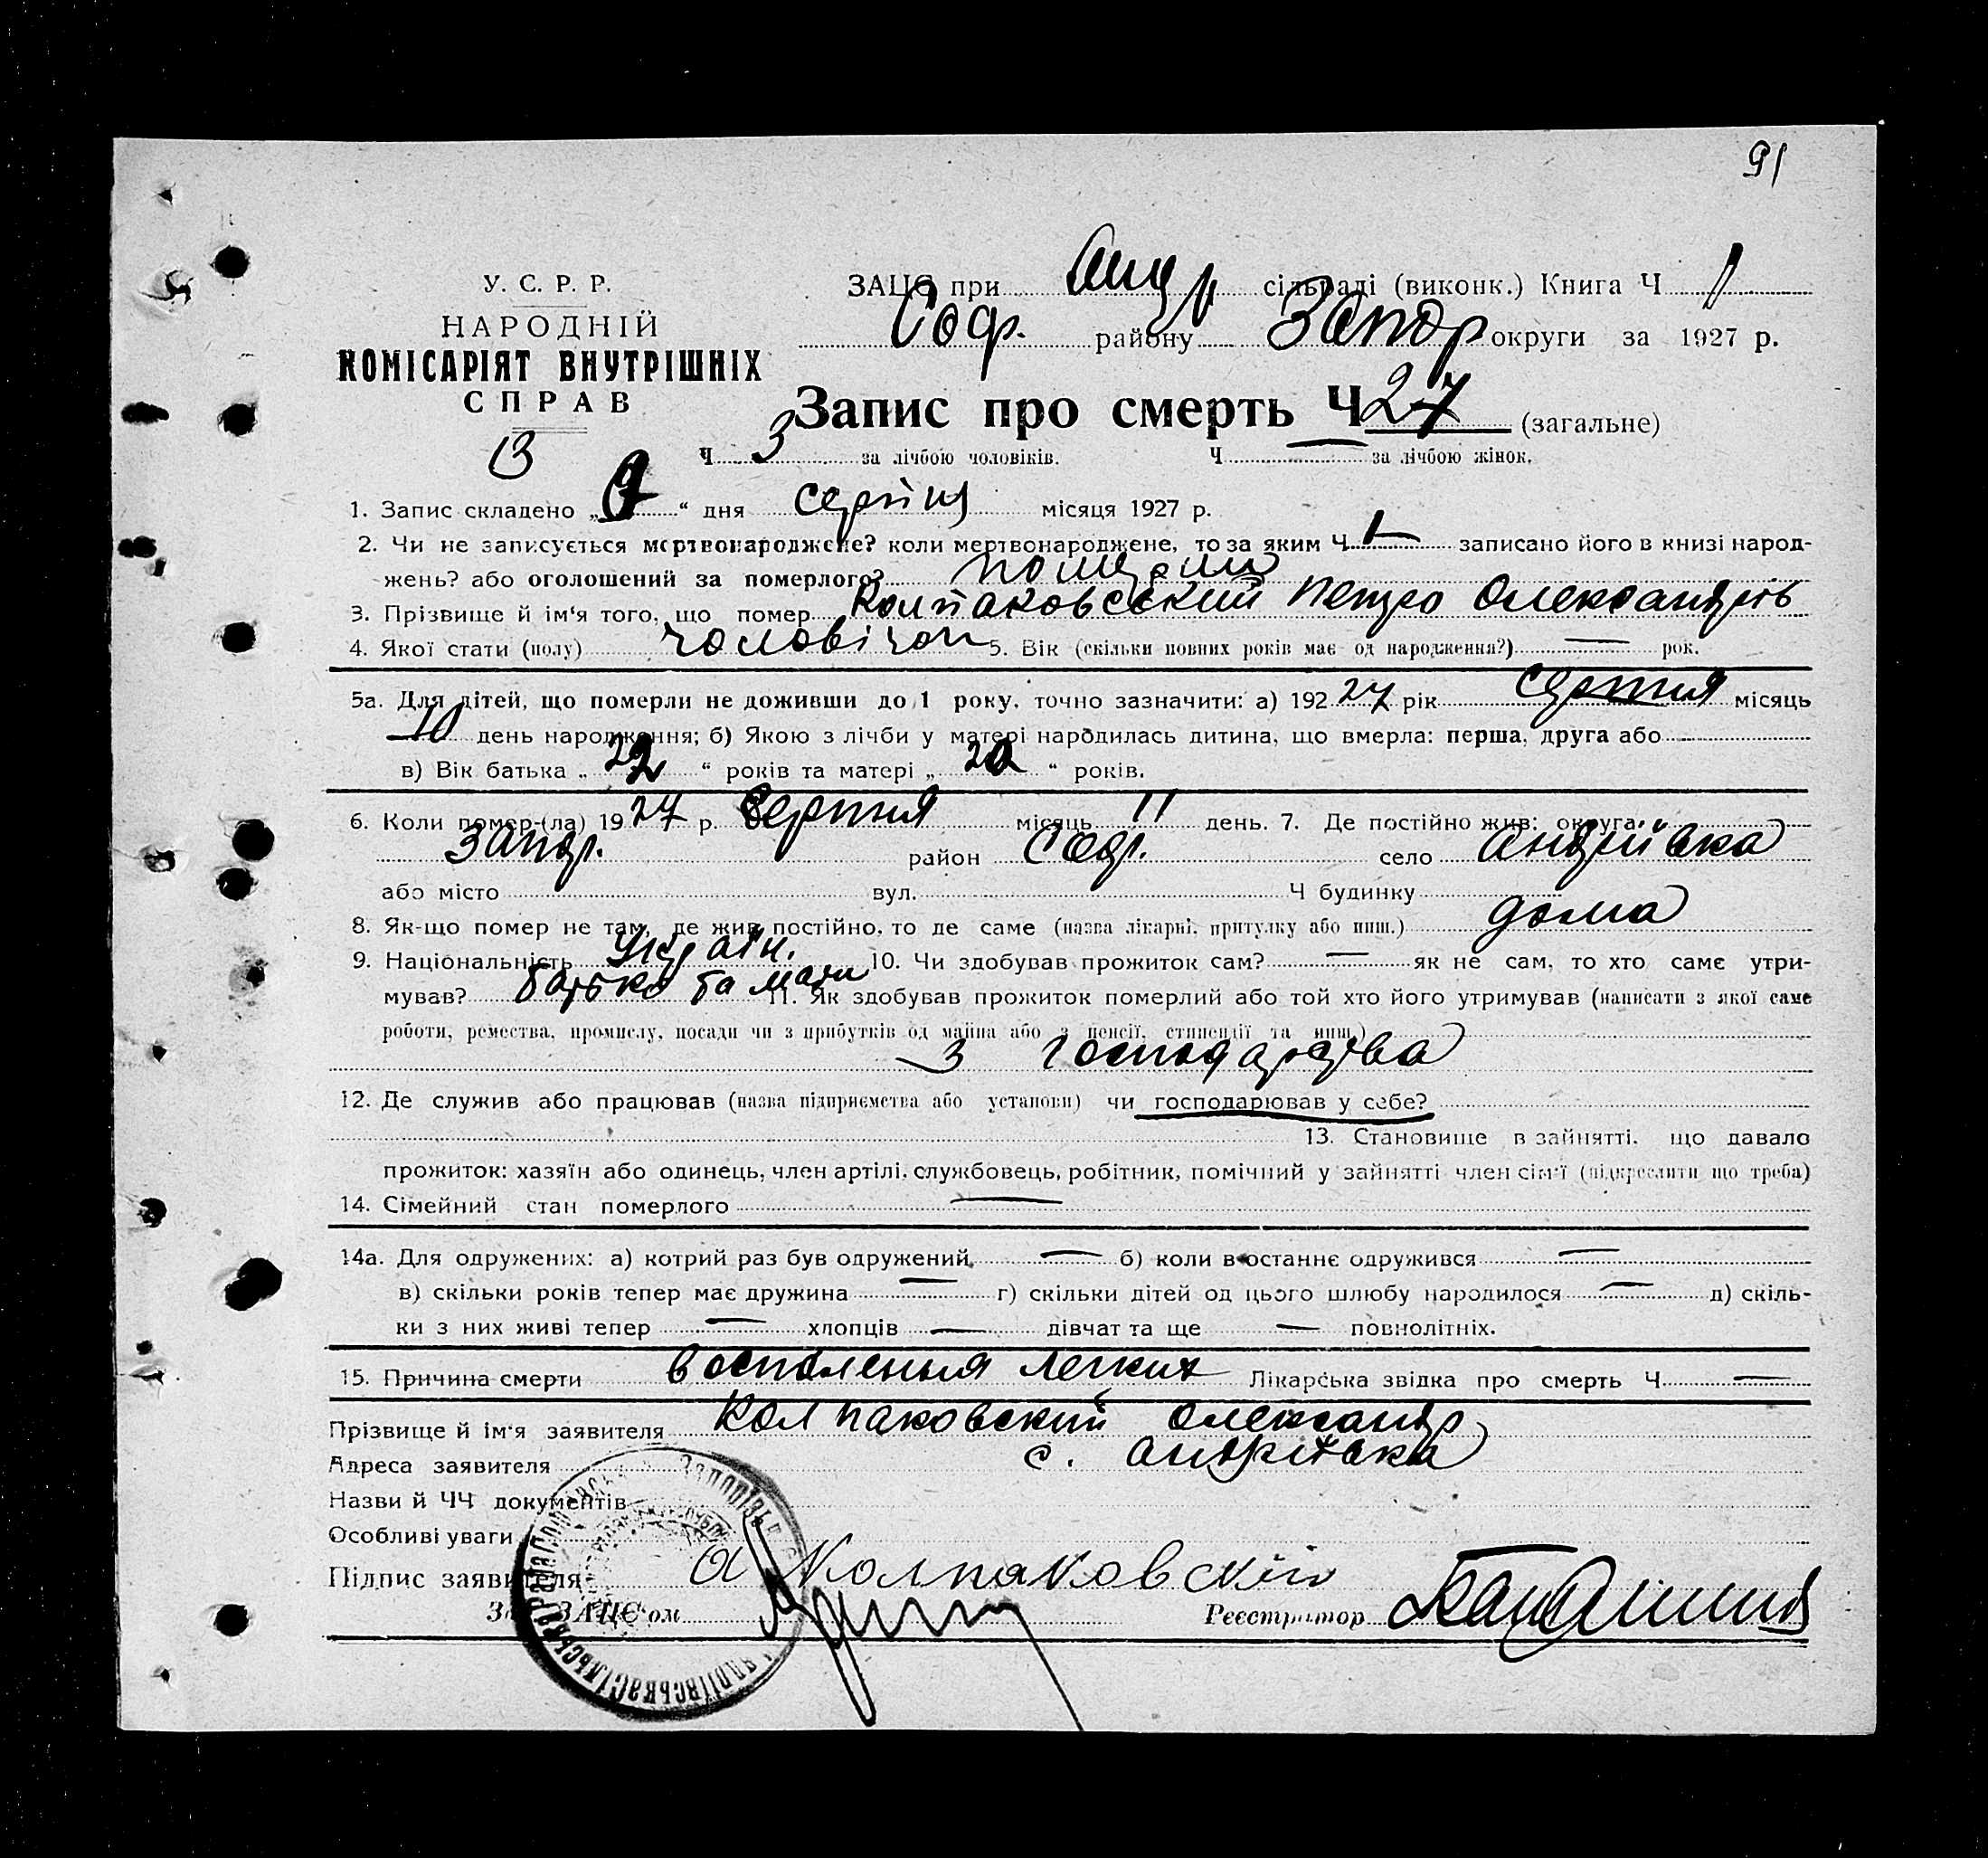 91
У. С. Р. Р.
НАРОДНІЙ
КОМІСАРІЯТ ВНУТРІШНІХ
СПРАВ
ЗАЦС при сільраді (виконк.) Книга Ч 1
Соф. району Запор округи за 1927 р.
Запис про смерть Ч 27 (загальне)
Ч 3 за лічбою чоловіків. Ч — за лічбою жінок.
1. Запис складено „ “ дня серпня місяця 1927 р.
2. Чи не записується мертвонароджене? коли мертвонароджене, то за яким Ч записано його в книзі народ-
жень? або оголошений за померлого?
3. Прізвище й ім‘я того, що помер Колпаковський Петро Олександрів
4. Якої стати (полу) 5. Вік (скільки повних років має од народження?) — рок.
5а. Для дітей, що померли не доживши до 1 року, точно зазначити: а) 192 27 рік серпня місяць
10 день народження; б) Якою з лічби у матері народилась дитина, що вмерла: перша, друга або —
в) Вік батька „ 22 “ років та матері „ 20 “ років.
6. Коли помер-(ла) 19 27 р. Серпня місяць 11 день. 7. Де постійно жив: округа
Запор. район Соф. село Андріївка
або місто вул. Ч будинку
8. Як-що помер не там, де жив постійно, то де саме (назва лікарні, притулку або инш.) дома
9. Національність Україн. 10. Чи здобував прожиток сам? — як не сам, то хто саме утри-
мував? батько та мати 11. Як здобував прожиток померлий або той хто його утримував (написати з якої саме
роботи, ремества, промислу, посади чи з прибутків од майна або з пенсії, стипендії та инш.)
з господарства
12. Де служив або працював (назва підприємства або установи) чи господарював у себе?
13. Становище в зайнятті, що давало
прожиток: хазяїн або одинець, член артілі, службовець, робітник, помічний у зайнятті член сім‘ї (підкреслити що треба)
14. Сімейний стан померлого —
14а. Для одружених: а) котрий раз був одружений — б) коли в останнє одружився —
в) скільки років тепер має дружина — г) скільки дітей од цього шлюбу народилося — д) скіль-
ки з них живі тепер — хлопців — дівчат та ще — повнолітніх.
15. Причина смерти воспаления легких Лікарська звідка про смерть Ч —
Прізвище й ім‘я заявителя Колпаковский Олександр
Адреса заявителя с. Андріївка
Назви й ЧЧ документів
Особливі уваги
Підпис заявителя А Колпаковскій
ЗАЦС‘ом Реєстратор